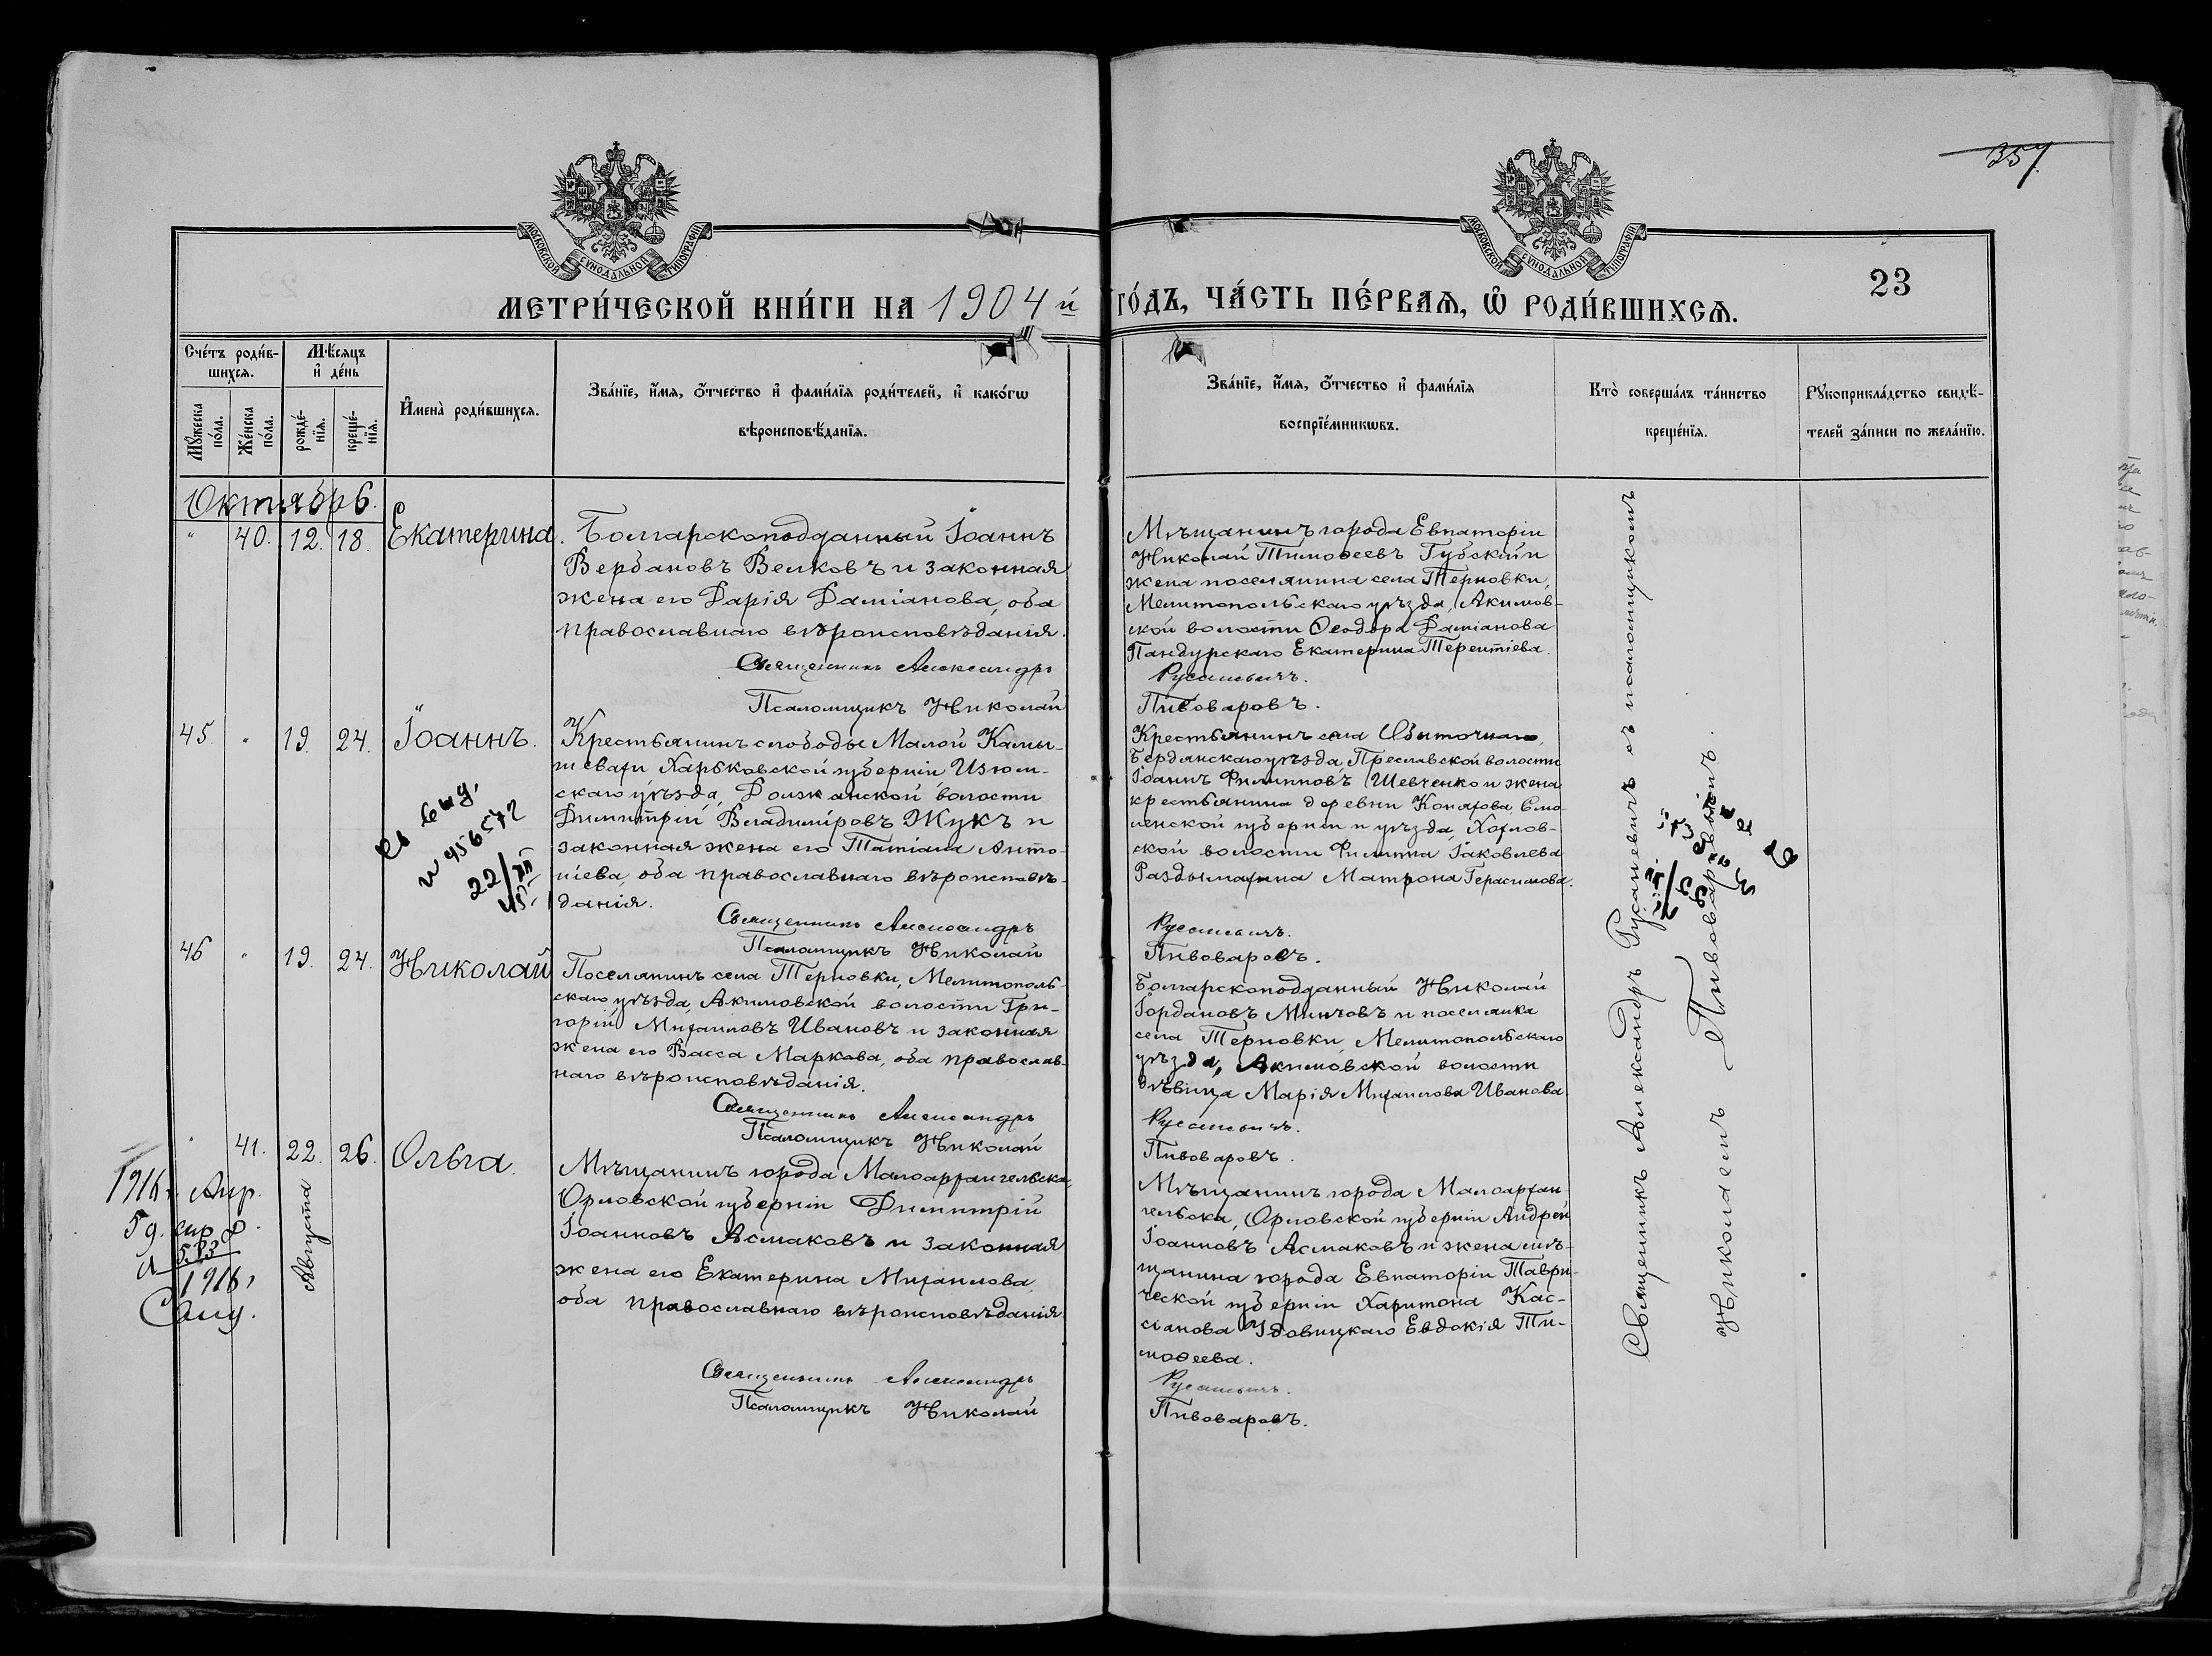 357.
МОСКОВСКОЙ СѴНОДАЛЬНОЙ ТИПОГРАФІИ
МОСКОВСКОЙ СѴНОДАЛЬНОЙ ТИПОГРАФІИ
23
МЕТРИ́ЧЕСКОЙ КНИ́ГИ НА 1904 й
ГО́ДЪ, ЧА́СТЬ ПЕ́РВАЯ, Ѡ РОДИ́ВШИХСЯ.
Сче́тъ роди́в-
шихся.
Мѣ́сяцъ
и де́нь
Мꙋ́жеска
по́ла.
Же́нска
по́ла.
рожде́-
нїя.
креще́-
нїя.
Имена̀ роди́вшихся.
Зва́нїе, и́мя, о́тчество и фами́лїя роди́телей, и како́гѡ
вѣроисповѣ́данїя.
Зва́нїе, и́мя, о́тчество и фами́лїя
воспрїе́мникѡвъ.
Кто̀ соверша́лъ та́инство
креще́нїя.
Рꙋкоприкла́дство свидѣ́-
телей за́писи по жела́нїю.
Октябрь.
" 40. 12. 18. Екатерина.
Болгарскоподданный Іоаннъ
Вербановъ Велковъ и законная
жена его Дарія Даміанова, оба
православнаго вѣроисповѣданія.
Священникъ Александръ
Псаломщикъ Николай
Мѣщанинъ города Евпаторіи
Николай Тимоѳеевъ Губскій и
жена поселянина села Терновки,
Мелитопольскаго уѣзда, Акимов-
ской волости Ѳеодора Даміанова
Пандурскаго Екатерина Терентіева.
Русаневичъ.
Пивоваровъ.
45. " 19. 24. Іоаннъ.
Крестьянинъ слободы Малой Камы-
шевахи Харьковской губерніи Изюм-
скаго уѣзда, Должанской волости
Димитрій Владиміровъ Жукъ и
законная жена его Татіана Анто-
ніева, оба православнаго вѣроисповѣ-
данія.
Священникъ Александръ
Псаломщикъ Николай
Крестьянинъ села Обиточнаго,
Бердянскаго уѣзда, Преславской волости
Іоаннъ Филипповъ Шевченко и жена
крестьянина деревни Конахова, Смо-
ленской губерніи и уѣзда, Хохлов-
ской волости Филиппа Іаковлева
Раздымахина Матрона Герасимова.
Русаневичъ.
Пивоваровъ.
22/XII
46 " 19. 24. Николай
Поселянинъ села Терновки, Мелитополь-
скаго уѣзда, Акимовской волости Гри-
горій Михаиловъ Ивановъ и законная
жена его Васса Маркова, оба православ-
наго вѣроисповѣданія.
Священникъ Александръ
Псаломщикъ Николай
Болгарскоподданный Николай
Іордановъ Минчовъ и поселянка
села Терновки, Мелитопольскаго
уѣзда, Акимовской волости
дѣвица Марія Михаилова Иванова.
Русаневичъ.
Пивоваровъ.
" 41. 22. 26. Ольга.
Августа
1916 г. Апр.
1916,
Мѣщанинъ города Малоархангельска,
Орловской губерніи Димитрій
Іоанновъ Асмаковъ и законная
жена его Екатерина Михаилова,
оба православнаго вѣроисповѣданія
Священникъ Александръ
Псаломщикъ Николай
Мѣщанинъ города Малоархан-
гельска, Орловской губерніи Андрей
Іоанновъ Асмаковъ и жена мѣ-
щанина города Евпаторіи Таври-
ческой губерніи Харитона Кас-
сіанова Удовицкаго Евдокія Ти-
моѳеева.
Русаневичъ.
Пивоваровъ.
Священникъ Александръ Русаневичъ съ псаломщикомъ
Николаемъ Пивоваровымъ.